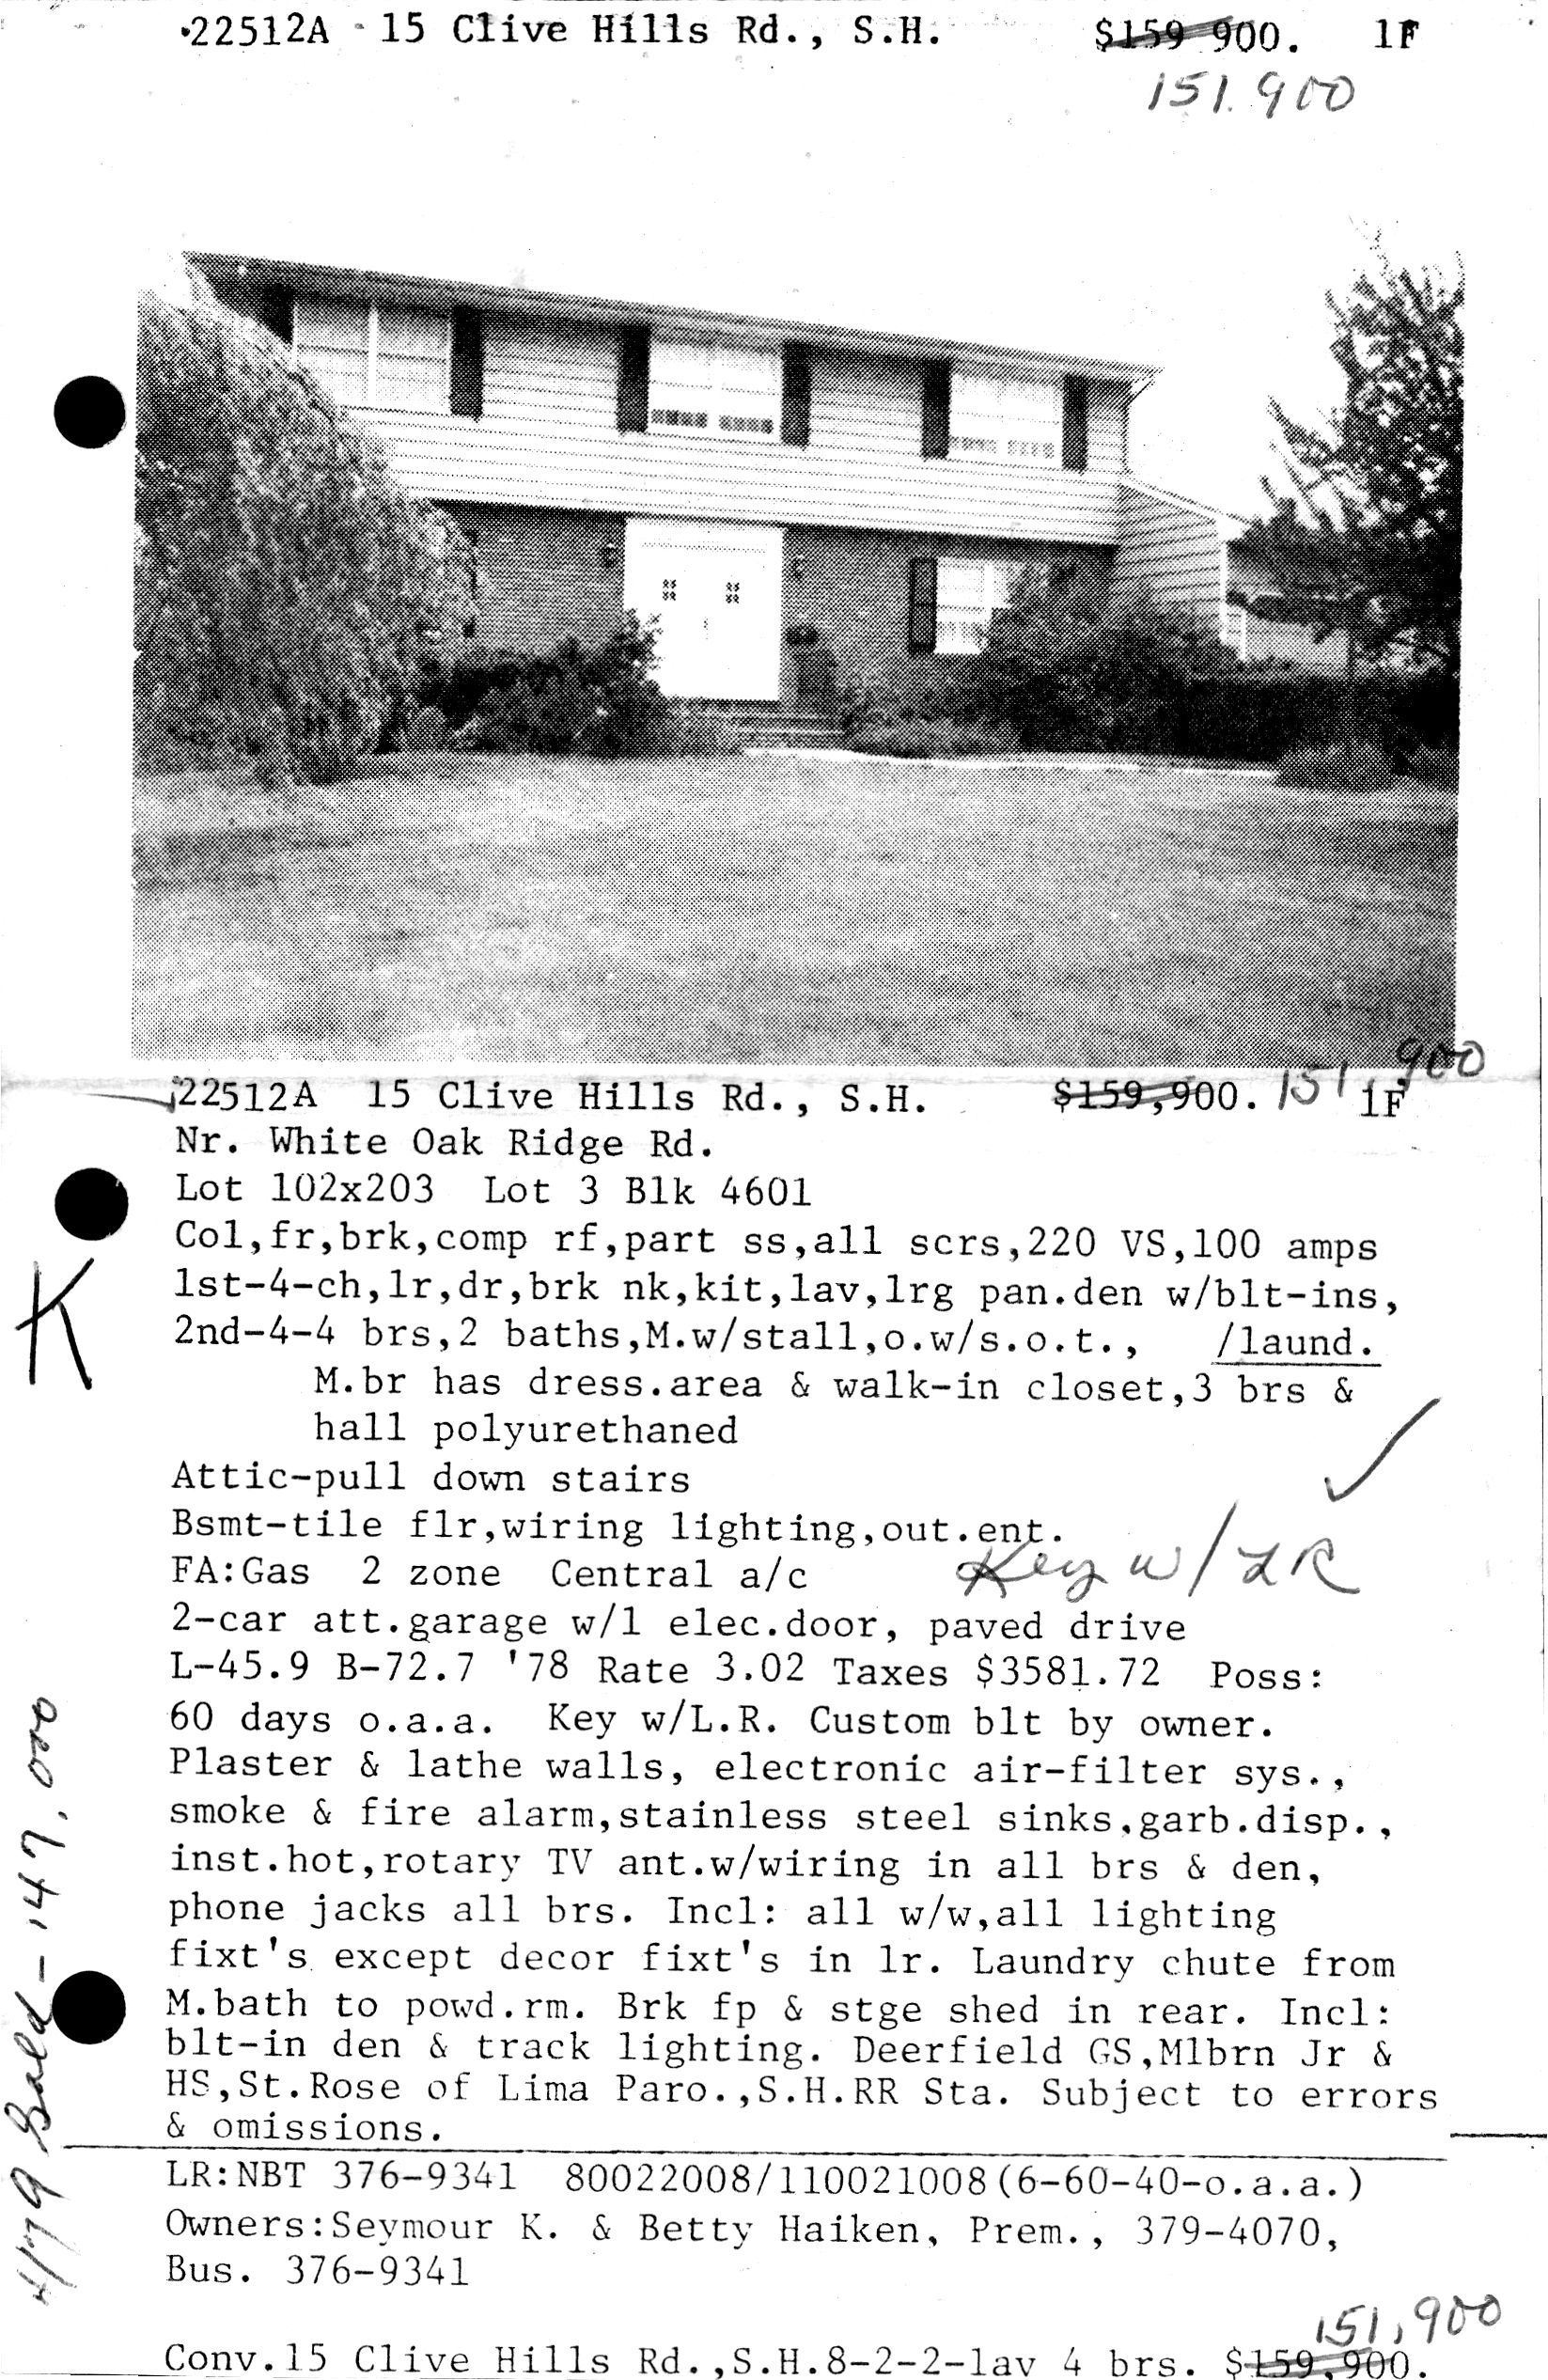 22512A 15 Clive Hills Rd., S.H. $159 900. 1F
151.900
22512A 15 Clive Hills Rd., S.H. $159,900. 151,900 1F
Nr. White Oak Ridge Rd.
Lot 102x203 Lot 3 Blk 4601
Col,fr,brk,comp rf,part ss,all scrs,220 VS,100 amps
1st-4-ch,lr,dr,brk nk,kit,lav,lrg pan.den w/blt-ins,
2nd-4-4 brs,2 baths,M.w/stall,o.w/s.o.t., /laund.
K
M.br has dress.area & walk-in closet,3 brs &
hall polyurethaned
Attic-pull down stairs
Bsmt-tile flr,wiring lighting,out.ent.
FA:Gas 2 zone Central a/c Key w/LR
2-car att.garage w/1 elec.door, paved drive
L-45.9 B-72.7 '78 Rate 3.02 Taxes $3581.72 Poss:
60 days o.a.a. Key w/L.R. Custom blt by owner.
Plaster & lathe walls, electronic air-filter sys.,
smoke & fire alarm,stainless steel sinks,garb.disp.,
inst.hot,rotary TV ant.w/wiring in all brs & den,
phone jacks all brs. Incl: all w/w,all lighting
fixt's except decor fixt's in lr. Laundry chute from
M.bath to powd.rm. Brk fp & stge shed in rear. Incl:
blt-in den & track lighting. Deerfield GS,Mlbrn Jr &
HS,St.Rose of Lima Paro.,S.H.RR Sta. Subject to errors
& omissions.
4/79 Sold - 147,000
LR:NBT 376-9341 80022008/110021008(6-60-40-o.a.a.)
Owners:Seymour K. & Betty Haiken, Prem., 379-4070,
Bus. 376-9341
151,900
Conv.15 Clive Hills Rd.,S.H.8-2-2-lav 4 brs. $159,900.